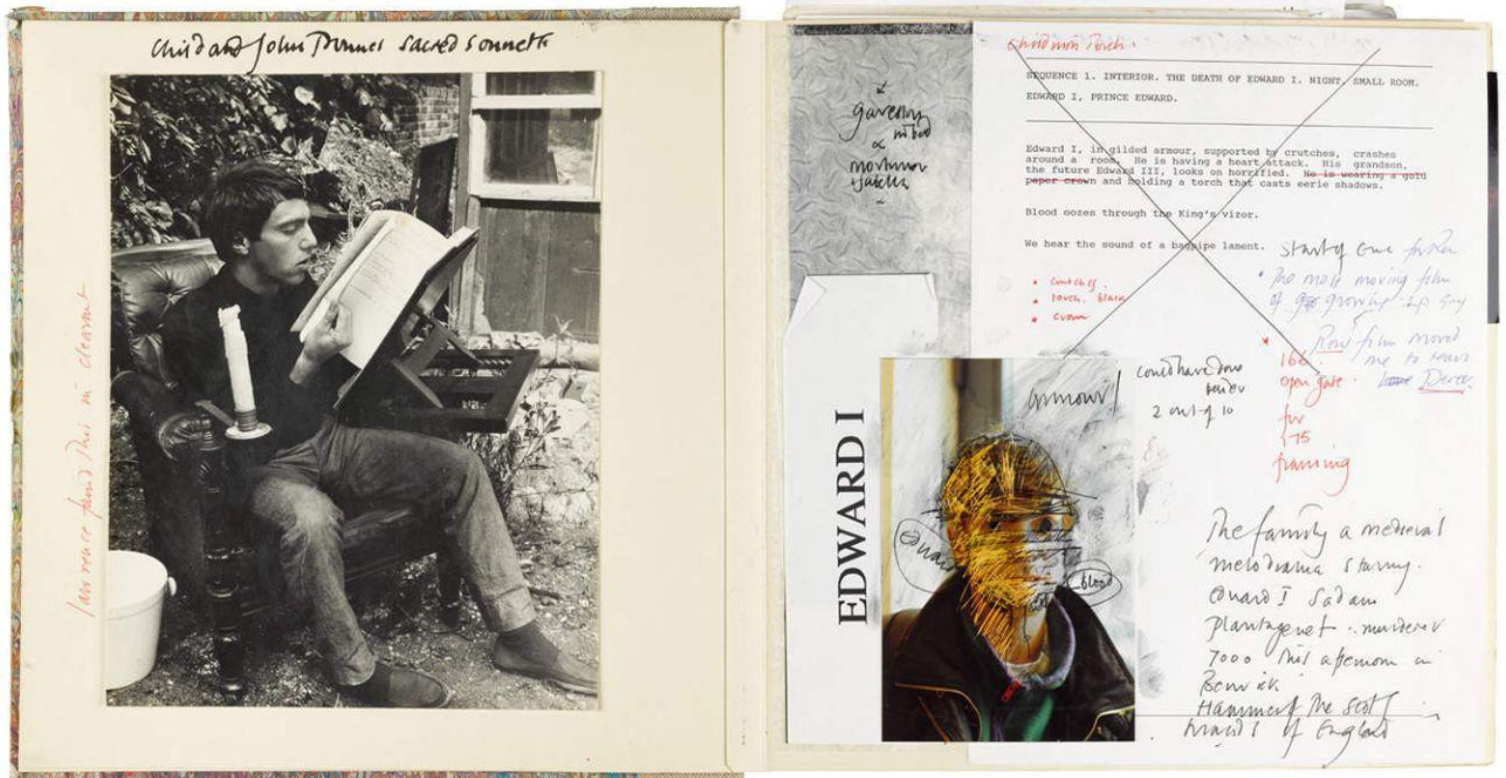 Child and John Donnes Sacred Sonnets
Lawrence found this in clearout
gaveston
in bed
&
mortimer
isabella
EDWARD I
Child with Torch.
SEQUENCE 1. INTERIOR. THE DEATH OF EDWARD I. NIGHT, SMALL ROOM.
EDWARD I, PRINCE EDWARD.
Edward I, in gilded armour, supported by crutches, crashes
around a room. He is having a heart attack. His grandson,
the future Edward III, looks on horrified. He is wearing a gold
paper crown and holding a torch that casts eerie shadows.
Blood oozes through the King's vizor.
We hear the sound of a bagpipe lament.
• crutches.
• torch. black
• crown
start of one
• The most moving film
of growing up gay
Ron's film moved
me to tears
Derek
could have done
better
2 out of 10
166
open gate.
for
1-75
framing
armour!
edward
blood
The family a medieval
melodrama starring.
Edward I Sadam
Plantagenet .. murderer
7000 this afternoon in
Berwick
Hammer of the Scots
of England